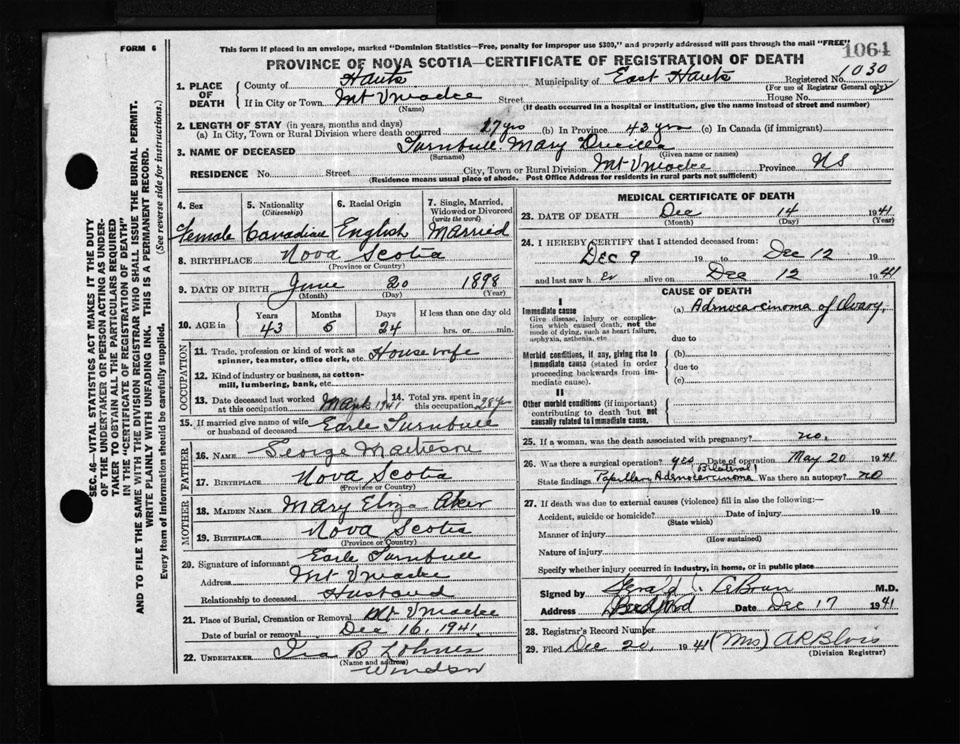 FORM 6
This form if placed in an envelope, marked "Dominion Statistics—Free, penalty for improper use $300," and properly addressed will pass through the mail "FREE"
1064
PROVINCE OF NOVA SCOTIA—CERTIFICATE OF REGISTRATION OF DEATH
1. PLACE OF DEATH
County of Hants Municipality of East Hants Registered No. 1030
(For use of Registrar General only)
If in City or Town Mt Uniacke Street House No.
(Name) (If death occurred in a hospital or institution, give the name instead of street and number)
2. LENGTH OF STAY (in years, months and days)
(a) In City, Town or Rural Division where death occurred 27 yrs (b) In Province 43 yrs (c) In Canada (if immigrant)
3. NAME OF DECEASED Turnbull Mary Drucilla
(Surname) (Given name or names)
RESIDENCE No. Street City, Town or Rural Division Mt Uniacke Province NS
(Residence means usual place of abode. Post Office Address for residents in rural parts not sufficient)
4. Sex Female
5. Nationality (Citizenship) Canadian
6. Racial Origin English
7. Single, Married, Widowed or Divorced (write the word) Married
8. BIRTHPLACE Nova Scotia
(Province or Country)
9. DATE OF BIRTH June 20 1898
(Month) (Day) (Year)
10. AGE in Years Months Days If less than one day old
43 5 24 hrs. or min.
OCCUPATION
11. Trade, profession or kind of work as spinner, teamster, office clerk, etc. Housewife
12. Kind of industry or business, as cotton-mill, lumbering, bank, etc.
13. Date deceased last worked at this occupation 1941
14. Total yrs. spent in this occupation 28 y
15. If married give name of wife or husband of deceased Earle Turnbull
FATHER
16. NAME George
17. BIRTHPLACE Nova Scotia
(Province or Country)
MOTHER
18. MAIDEN NAME Mary Eliza Aker
19. BIRTHPLACE Nova Scotia
(Province or Country)
20. Signature of informant Earle Turnbull
Address Mt Uniacke
Relationship to deceased Husband
21. Place of Burial, Cremation or Removal Mt Uniacke
Date of burial or removal Dec 16, 1941
22. UNDERTAKER Ira B Lohnes
(Name and address)
Windsor
MEDICAL CERTIFICATE OF DEATH
23. DATE OF DEATH Dec 14 1941
(Month) (Day) (Year)
24. I HEREBY CERTIFY that I attended deceased from:
Dec 9 19 to Dec 12 19
and last saw h er alive on Dec 12 1941
CAUSE OF DEATH
I
Immediate cause
Give disease, injury or complication which caused death, not the mode of dying, such as heart failure, asphyxia, asthenia, etc
(a) Adenocarcinoma of Ovary,
due to
Morbid conditions, if any, giving rise to immediate cause (stated in order proceeding backwards from immediate cause).
(b)
due to
(c)
II
Other morbid conditions (if important) contributing to death but not causally related to immediate cause.
25. If a woman, was the death associated with pregnancy? no.
26. Was there a surgical operation? yes Date of operation May 20 1941
Bilateral
State findings Papillary Adenocarcinoma Was there an autopsy? no
27. If death was due to external causes (violence) fill in also the following:—
Accident, suicide or homicide? Date of injury 19
(State which)
Manner of injury
(How sustained)
Nature of injury
Specify whether injury occurred in industry, in home, or in public place
Signed by Gerald LeBrun M.D.
Address Bedford Date Dec 17 1941
28. Registrar's Record Number
29. Filed Dec 20, 1941 (Mrs) A R
(Division Registrar)
SEC. 46—VITAL STATISTICS ACT MAKES IT THE DUTY
OF THE UNDERTAKER OR PERSON ACTING AS UNDER-
TAKER TO OBTAIN ALL THE PARTICULARS REQUIRED
IN THE "CERTIFICATE OF REGISTRATION OF DEATH"
AND TO FILE THE SAME WITH THE DIVISION REGISTRAR WHO SHALL ISSUE THE BURIAL PERMIT.
WRITE PLAINLY WITH UNFADING INK. THIS IS A PERMANENT RECORD.
Every item of information should be carefully supplied. (See reverse side for instructions.)